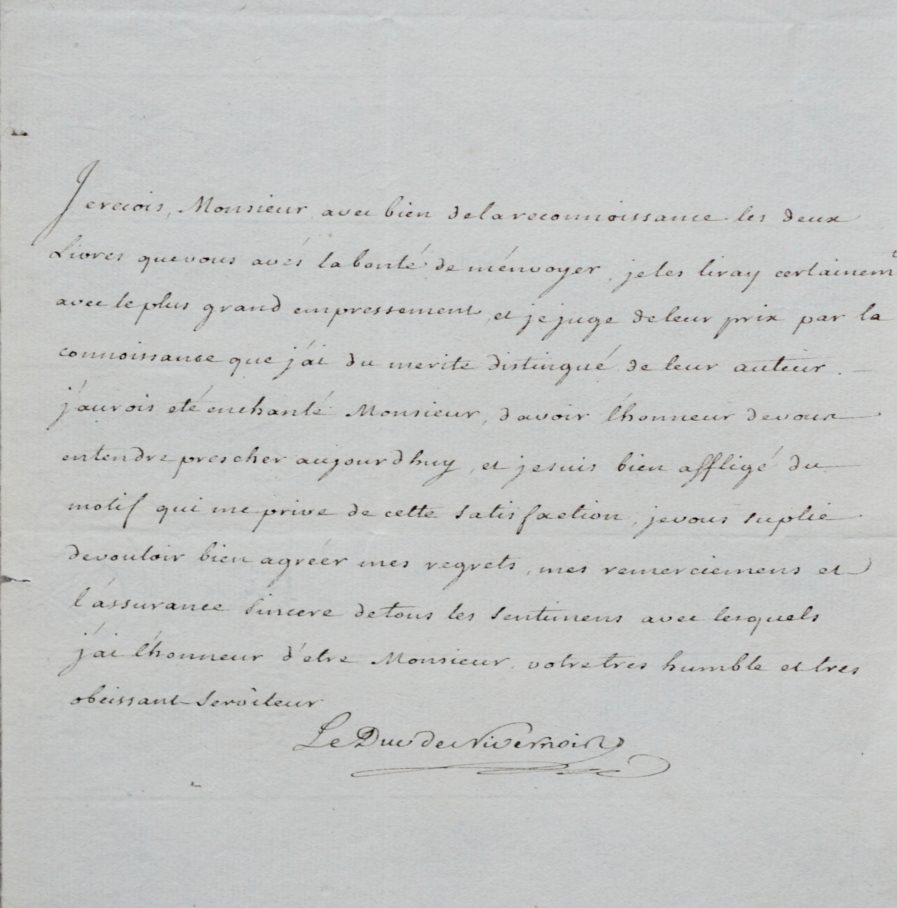 Je reçois, Monsieur, avec bien de la reconnoissance les deux
Livres que vous avés la bonté de m'envoyer, je les liray certainem.t
avec le plus grand empressement, et je juge de leur prix par la
connoissance que j'ai du merite distingué de leur auteur.
j'aurois eté enchanté Monsieur, d'avoir l'honneur de vous
entendre prescher aujourd'huy, et je suis bien affligé du
motif qui me prive de cette satisfaction, je vous suplie
de vouloir bien agréer mes regrets, mes remerciemens et
l'assurance sincere de tous les sentimens avec lesquels
j'ai l'honneur d'etre Monsieur, votre tres humble et tres
obeissant serviteur
Le Duc de Nivernois